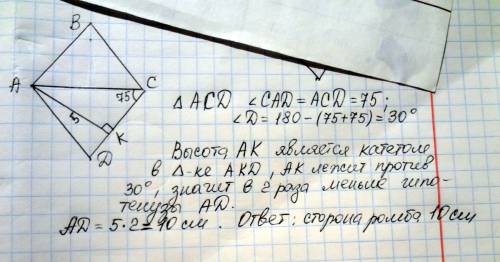 B
A
75
C
5
K
D
Δ ACD ∠CAD = ACD = 75;
∠D = 180 - (75+75) = 30°
Высота AK является катетом
в Δ-ке AKD, AK лежит против
30°, значит в 2 раза меньше гипо-
тенузы AD.
AD = 5·2 = 10 см. Ответ: сторона ромба 10 см